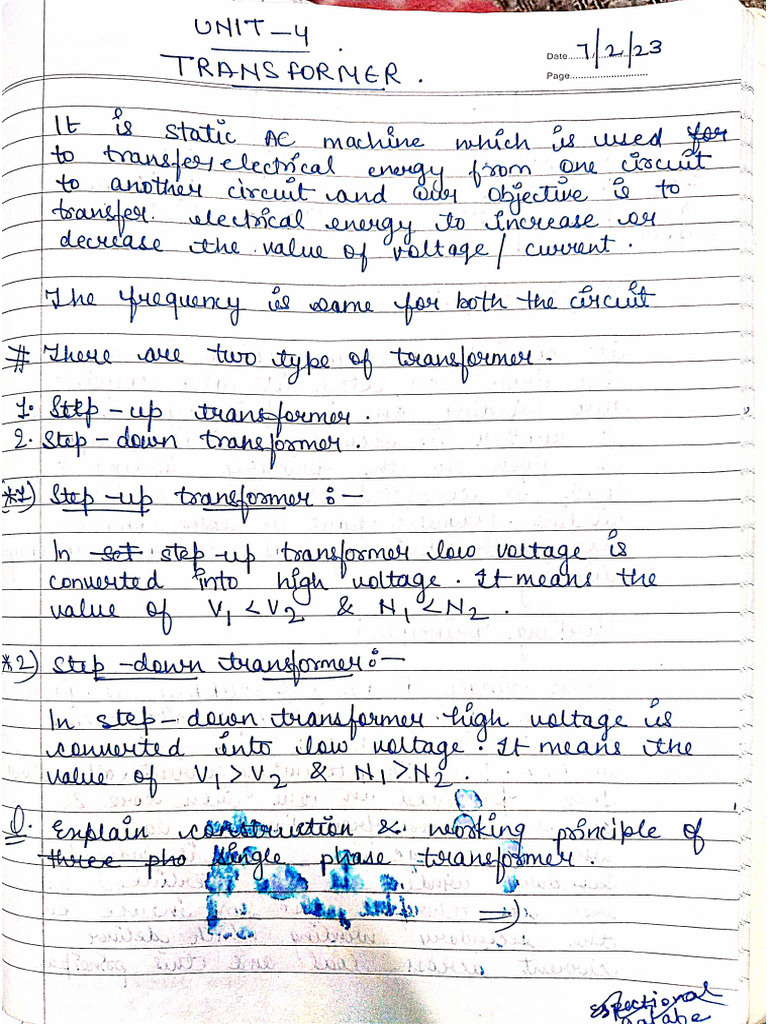 UNIT-4
TRANSFORMER.
Date 7/2/23
Page
It is static AC machine which is used for
to transfer electrical energy from one circuit
to another circuit and our objective is to
transfer electrical energy to increase or
decrease the value of voltage/ current.
The frequency is same for both the circuit
# There are two type of transformer.
1. Step-up transformer.
2. Step-down transformer.
*1) Step-up transformer :-
In set step-up transformer low voltage is
converted into high voltage. It means the
value of V₁ < V₂ & N₁ < N₂.
*2) Step-down transformer :-
In step-down transformer high voltage is
converted into low voltage. It means the
value of V₁ > V₂ & N₁ > N₂.
Q. Explain construction & working principle of
three pha single phase transformer.
⇒)